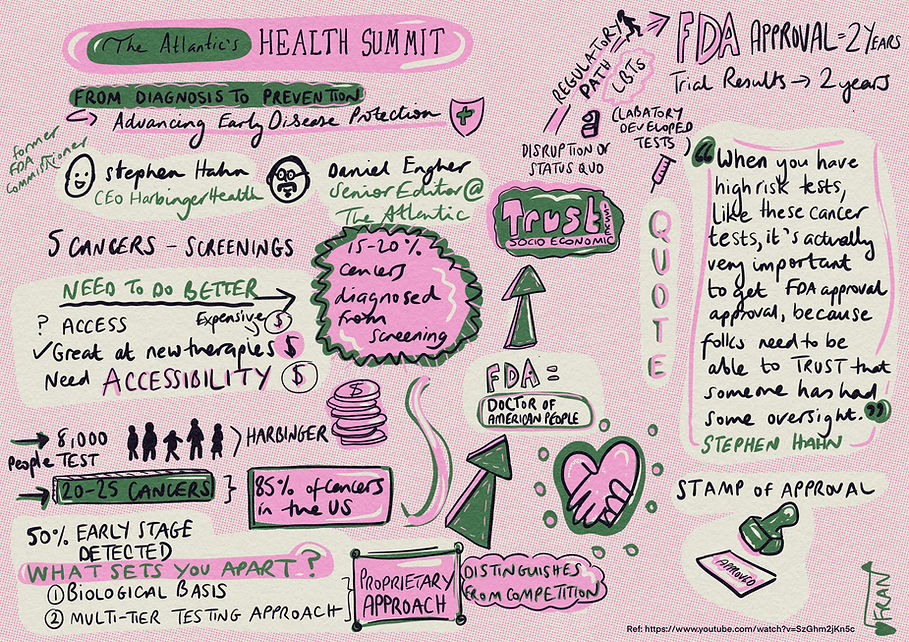 The Atlantic's HEALTH SUMMIT
FROM DIAGNOSIS TO PREVENTION
Advancing Early Disease Protection
former
FDA
Commissioner
Stephen Hahn
CEO Harbinger Health
Daniel Engber
Senior Editor @
The Atlantic
5 CANCERS - SCREENINGS
NEED TO DO BETTER
Expensive $
? ACCESS
✓Great at new therapies $
Need ACCESSIBILITY $
15-20%
cancers
diagnosed
from
screening
$
→ 8,000
People TEST
HARBINGER
→ 20-25 CANCERS
85% of cancers
in the US
50% EARLY STAGE
DETECTED
WHAT SETS YOU APART?
① BIOLOGICAL BASIS
② MULTI-TIER TESTING APPROACH
PROPRIETARY
APPROACH
DISTINGUISHES
FROM COMPETITION
REGULATORY
PATH
LBTs
(LABATORY
DEVELOPED
TESTS)
DISRUPTION OF
STATUS QUO
FDA APPROVAL = 2 YEARS
Trial Results → 2 years
Trust
SOCIO ECONOMIC
FDA =
DOCTOR OF
AMERICAN PEOPLE
QUOTE
“When you have
high risk tests,
Like these cancer
tests, it's actually
very important
to get FDA approval
approval, because
folks need to be
able to TRUST that
someone has had
some oversight.”
STEPHEN HAHN
STAMP OF APPROVAL
APPROVED
FRAN
Ref: https://www.youtube.com/watch?v=SzGhm2jKn5c